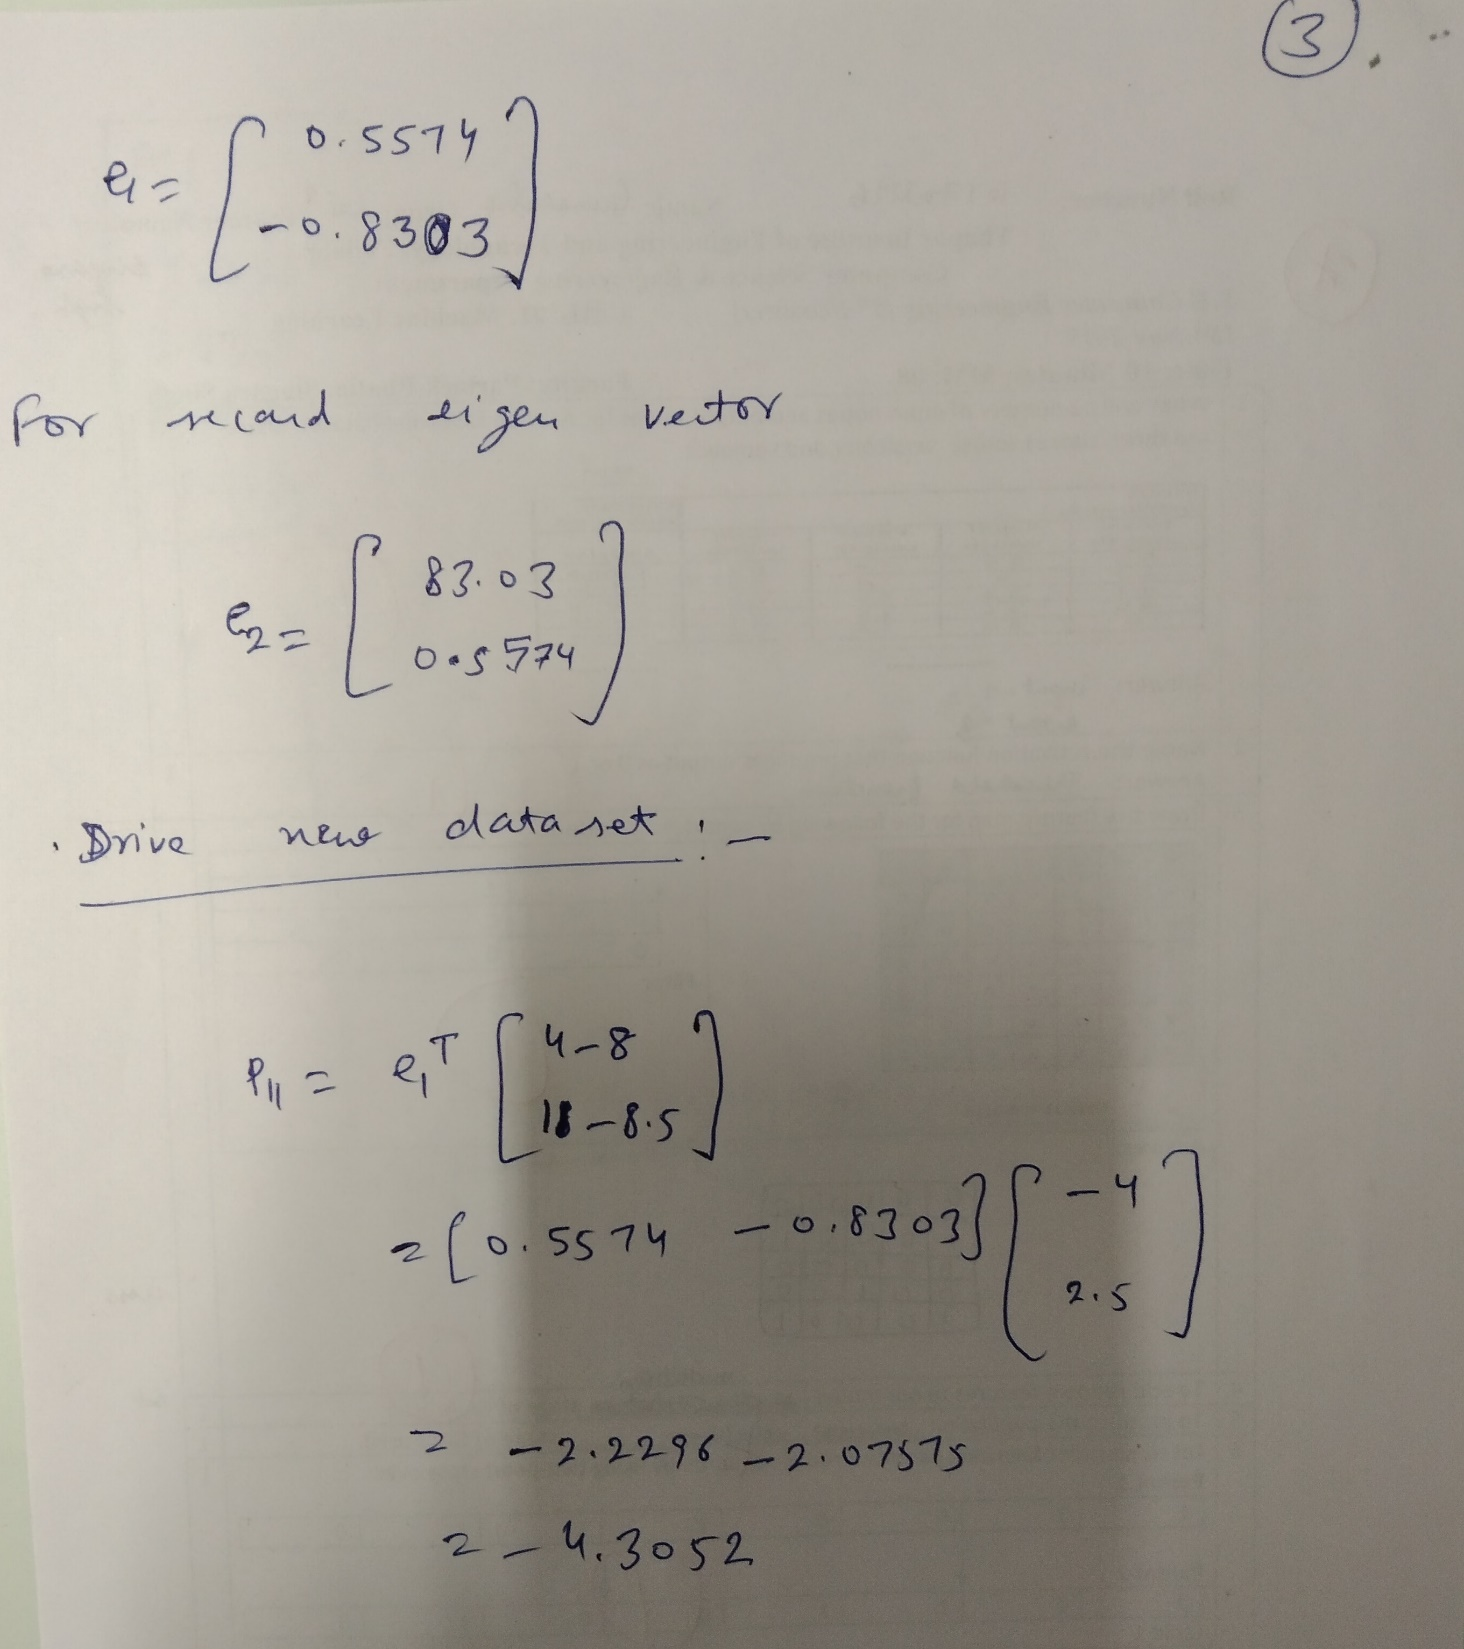 3.
e1 = [ 0.5574
-0.8303 ]
For second eigen vector
e2 = [ 83.03
0.5574 ]
. Drive new data set :-
P11 = e1^T [ 4-8
11-8.5 ]
= [0.5574 -0.8303] [ -4
2.5 ]
= -2.2296 -2.07575
= -4.3052